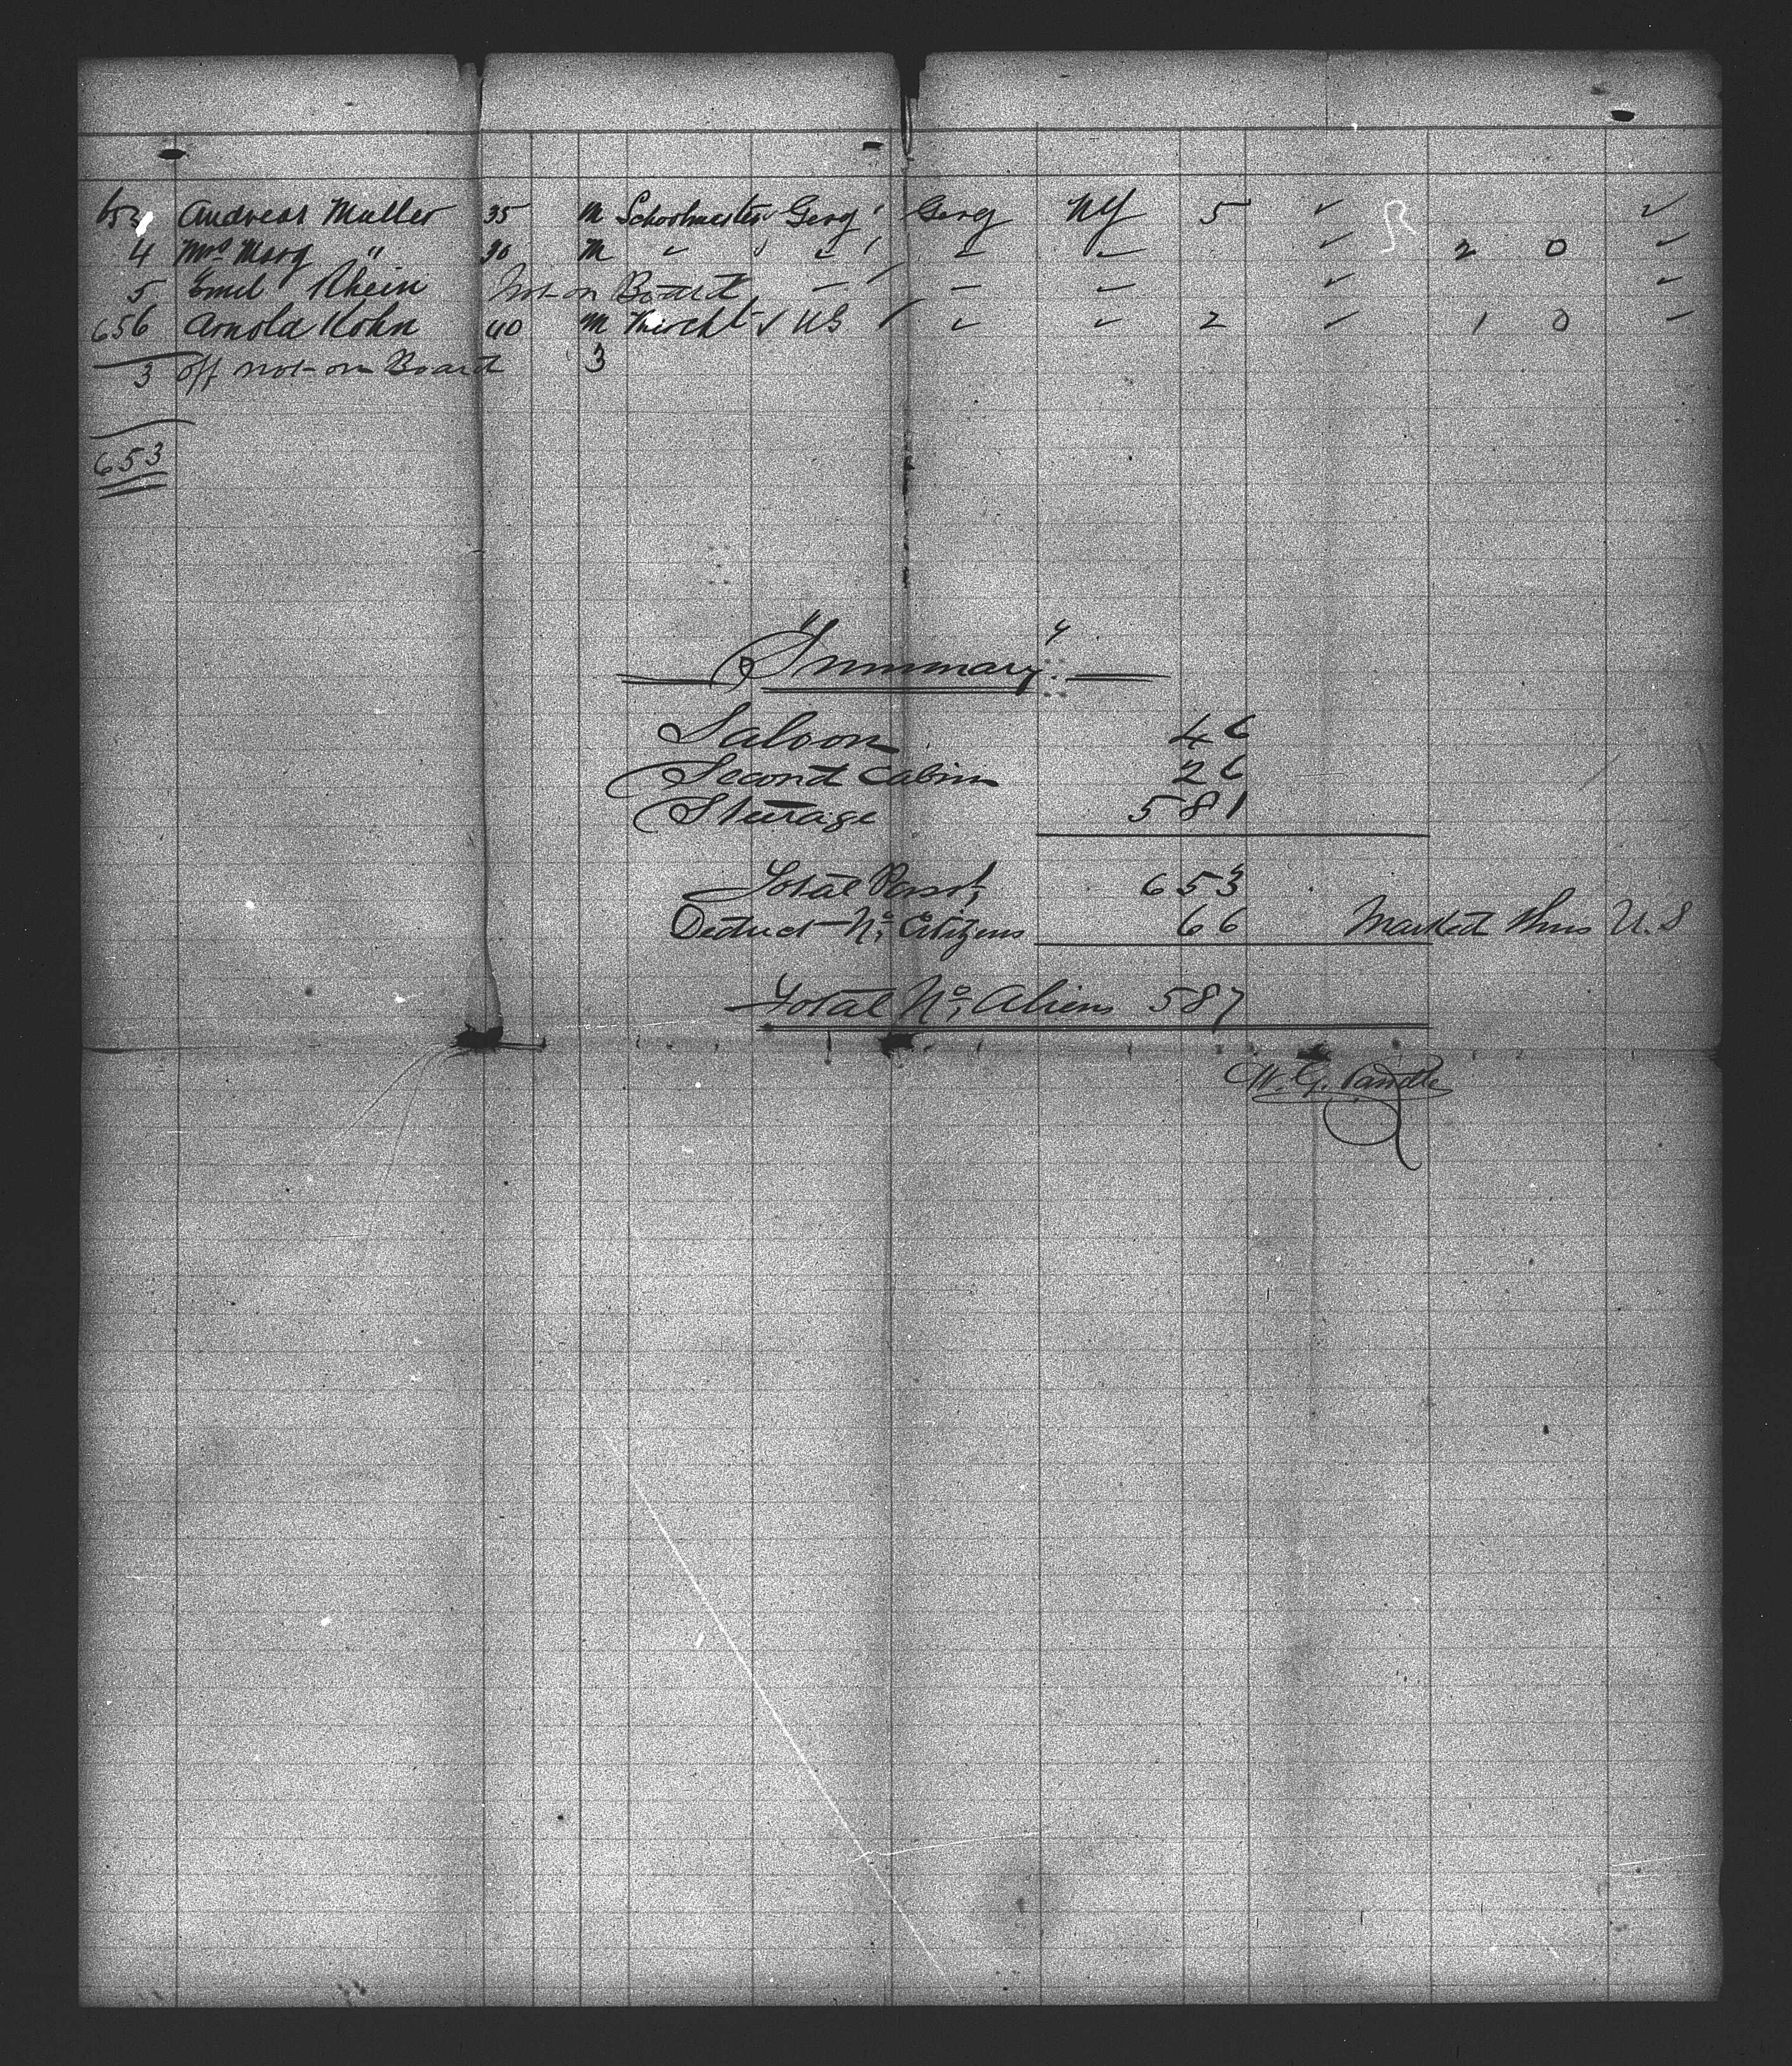 653 Andreas Muller 35 M Schoolmaster Gery Gery NY 5 ✓ ✓
4 Mrs Marg " 30 M " " " " " ✓ 2 0 ✓
5 Emil Rhein Not on Board — — — ✓ ✓
656 Arnold Kohn 40 M Mercht ✓ US ✓ ✓ 2 ✓ 1 0 ✓
3 off not on Board 3
653
"Summary"
Saloon 46
Second Cabin 26
Steerage 581
Total Passt, 653
Deduct No, Citizens 66 Marked thus U.S
Total No, Aliens 587
W. G. Randle